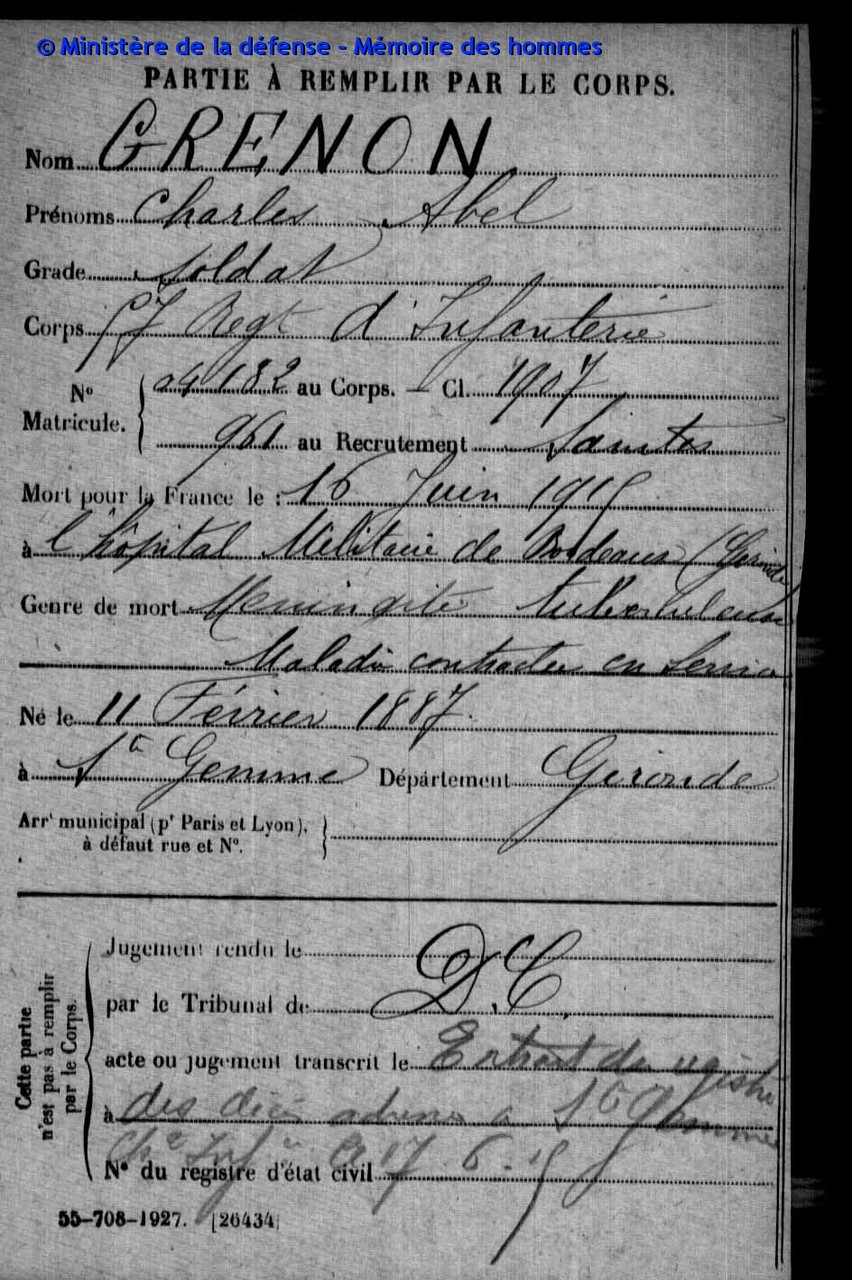 © Ministère de la défense - Mémoire des hommes
PARTIE À REMPLIR PAR LE CORPS.
Nom GRENON
Prénoms Charles Abel
Grade Soldat
Corps 57 Regt d'Infanterie
N° Matricule. { 182 au Corps. — Cl. 1907
961 au Recrutement Saintes
Mort pour la France le : 16 Juin 1915
à l'hôpital Militaire de Bordeaux (Gironde
Genre de mort Meningite tuberculeuse
Maladie contractée en Service
Né le 11 Février 1887
à Ste Gemme Département Gironde
Arrt municipal (pr Paris et Lyon), }
à défaut rue et N°.
Cette partie n'est pas à remplir par le Corps.
Jugement rendu le
par le Tribunal de D.C.
acte ou jugement transcrit le Extrait du registre
à des décès adressé a Ste Gemme
N° du registre d'état civil 17.6.15
55-708-1927. [26434]